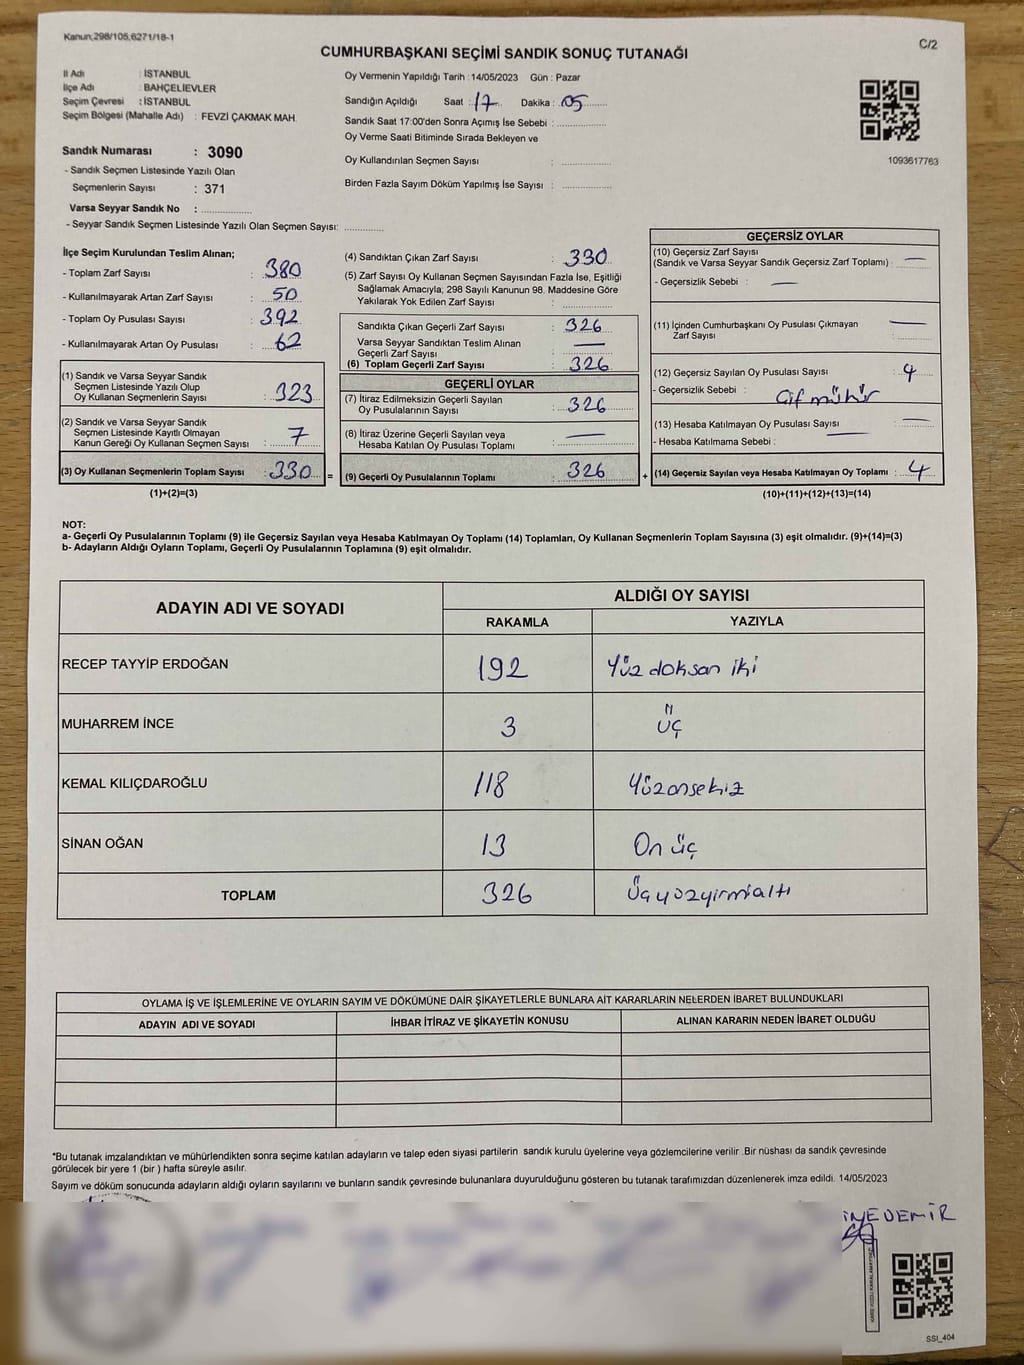 Kanun,298/105,6271/18-1
C/2
CUMHURBAŞKANI SEÇİMİ SANDIK SONUÇ TUTANAĞI
İl Adı : İSTANBUL
İlçe Adı : BAHÇELİEVLER
Seçim Çevresi : İSTANBUL
Seçim Bölgesi (Mahalle Adı) : FEVZİ ÇAKMAK MAH.
Sandık Numarası : 3090
- Sandık Seçmen Listesinde Yazılı Olan
Seçmenlerin Sayısı : 371
Varsa Seyyar Sandık No : ................
- Seyyar Sandık Seçmen Listesinde Yazılı Olan Seçmen Sayısı: ............
Oy Vermenin Yapıldığı Tarih : 14/05/2023 Gün : Pazar
Sandığın Açıldığı Saat : 17 Dakika : 05
Sandık Saat 17:00'den Sonra Açımış İse Sebebi : ...............
Oy Verme Saati Bitiminde Sırada Bekleyen ve
Oy Kullandırılan Seçmen Sayısı : ...............
Birden Fazla Sayım Döküm Yapılmış İse Sayısı : ...............
1093617763
İlçe Seçim Kurulundan Teslim Alınan;
- Toplam Zarf Sayısı : 380
- Kullanılmayarak Artan Zarf Sayısı : 50
- Toplam Oy Pusulası Sayısı : 392
- Kullanılmayarak Artan Oy Pusulası : 62
(1) Sandık ve Varsa Seyyar Sandık
Seçmen Listesinde Yazılı Olup
Oy Kullanan Seçmenlerin Sayısı : 323
(2) Sandık ve Varsa Seyyar Sandık
Seçmen Listesinde Kayıtlı Olmayan
Kanun Gereği Oy Kullanan Seçmen Sayısı : 7
(3) Oy Kullanan Seçmenlerin Toplam Sayısı : 330 =
(1)+(2)=(3)
(4) Sandıktan Çıkan Zarf Sayısı : 330
(5) Zarf Sayısı Oy Kullanan Seçmen Sayısından Fazla İse, Eşitliği
Sağlamak Amacıyla; 298 Sayılı Kanunun 98. Maddesine Göre
Yakılarak Yok Edilen Zarf Sayısı : ...............
Sandıkta Çıkan Geçerli Zarf Sayısı : 326
Varsa Seyyar Sandıktan Teslim Alınan
Geçerli Zarf Sayısı : —
(6) Toplam Geçerli Zarf Sayısı : 326
GEÇERLİ OYLAR
(7) İtiraz Edilmeksizin Geçerli Sayılan
Oy Pusulalarının Sayısı : 326
(8) İtiraz Üzerine Geçerli Sayılan veya
Hesaba Katılan Oy Pusulası Toplamı : —
(9) Geçerli Oy Pusulalarının Toplamı : 326 +
GEÇERSİZ OYLAR
(10) Geçersiz Zarf Sayısı
(Sandık ve Varsa Seyyar Sandık Geçersiz Zarf Toplamı) : —
- Geçersizlik Sebebi : —
(11) İçinden Cumhurbaşkanı Oy Pusulası Çıkmayan
Zarf Sayısı : —
(12) Geçersiz Sayılan Oy Pusulası Sayısı : 4
- Geçersizlik Sebebi : Çif mühür
(13) Hesaba Katılmayan Oy Pusulası Sayısı : —
- Hesaba Katılmama Sebebi : —
(14) Geçersiz Sayılan veya Hesaba Katılmayan Oy Toplamı : 4
(10)+(11)+(12)+(13)=(14)
NOT:
a- Geçerli Oy Pusulalarının Toplamı (9) ile Geçersiz Sayılan veya Hesaba Katılmayan Oy Toplamı (14) Toplamları, Oy Kullanan Seçmenlerin Toplam Sayısına (3) eşit olmalıdır. (9)+(14)=(3)
b- Adayların Aldığı Oyların Toplamı, Geçerli Oy Pusulalarının Toplamına (9) eşit olmalıdır.
ADAYIN ADI VE SOYADI
ALDIĞI OY SAYISI
RAKAMLA YAZIYLA
RECEP TAYYİP ERDOĞAN 192 Yüz doksan iki
MUHARREM İNCE 3 Üç
KEMAL KILIÇDAROĞLU 118 Yüzonsekiz
SİNAN OĞAN 13 On üç
TOPLAM 326 Üçyüzyirmialtı
OYLAMA İŞ VE İŞLEMLERİNE VE OYLARIN SAYIM VE DÖKÜMÜNE DAİR ŞİKAYETLERLE BUNLARA AİT KARARLARIN NELERDEN İBARET BULUNDUKLARI
ADAYIN ADI VE SOYADI İHBAR İTİRAZ VE ŞİKAYETİN KONUSU ALINAN KARARIN NEDEN İBARET OLDUĞU
*Bu tutanak imzalandıktan ve mühürlendikten sonra seçime katılan adayların ve talep eden siyasi partilerin sandık kurulu üyelerine veya gözlemcilerine verilir .Bir nüshası da sandık çevresinde
görülecek bir yere 1 (bir ) hafta süreyle asılır.
Sayım ve döküm sonucunda adayların aldığı oyların sayılarını ve bunların sandık çevresinde bulunanlara duyurulduğunu gösteren bu tutanak tarafımızdan düzenlenerek imza edildi. 14/05/2023
SSI_404